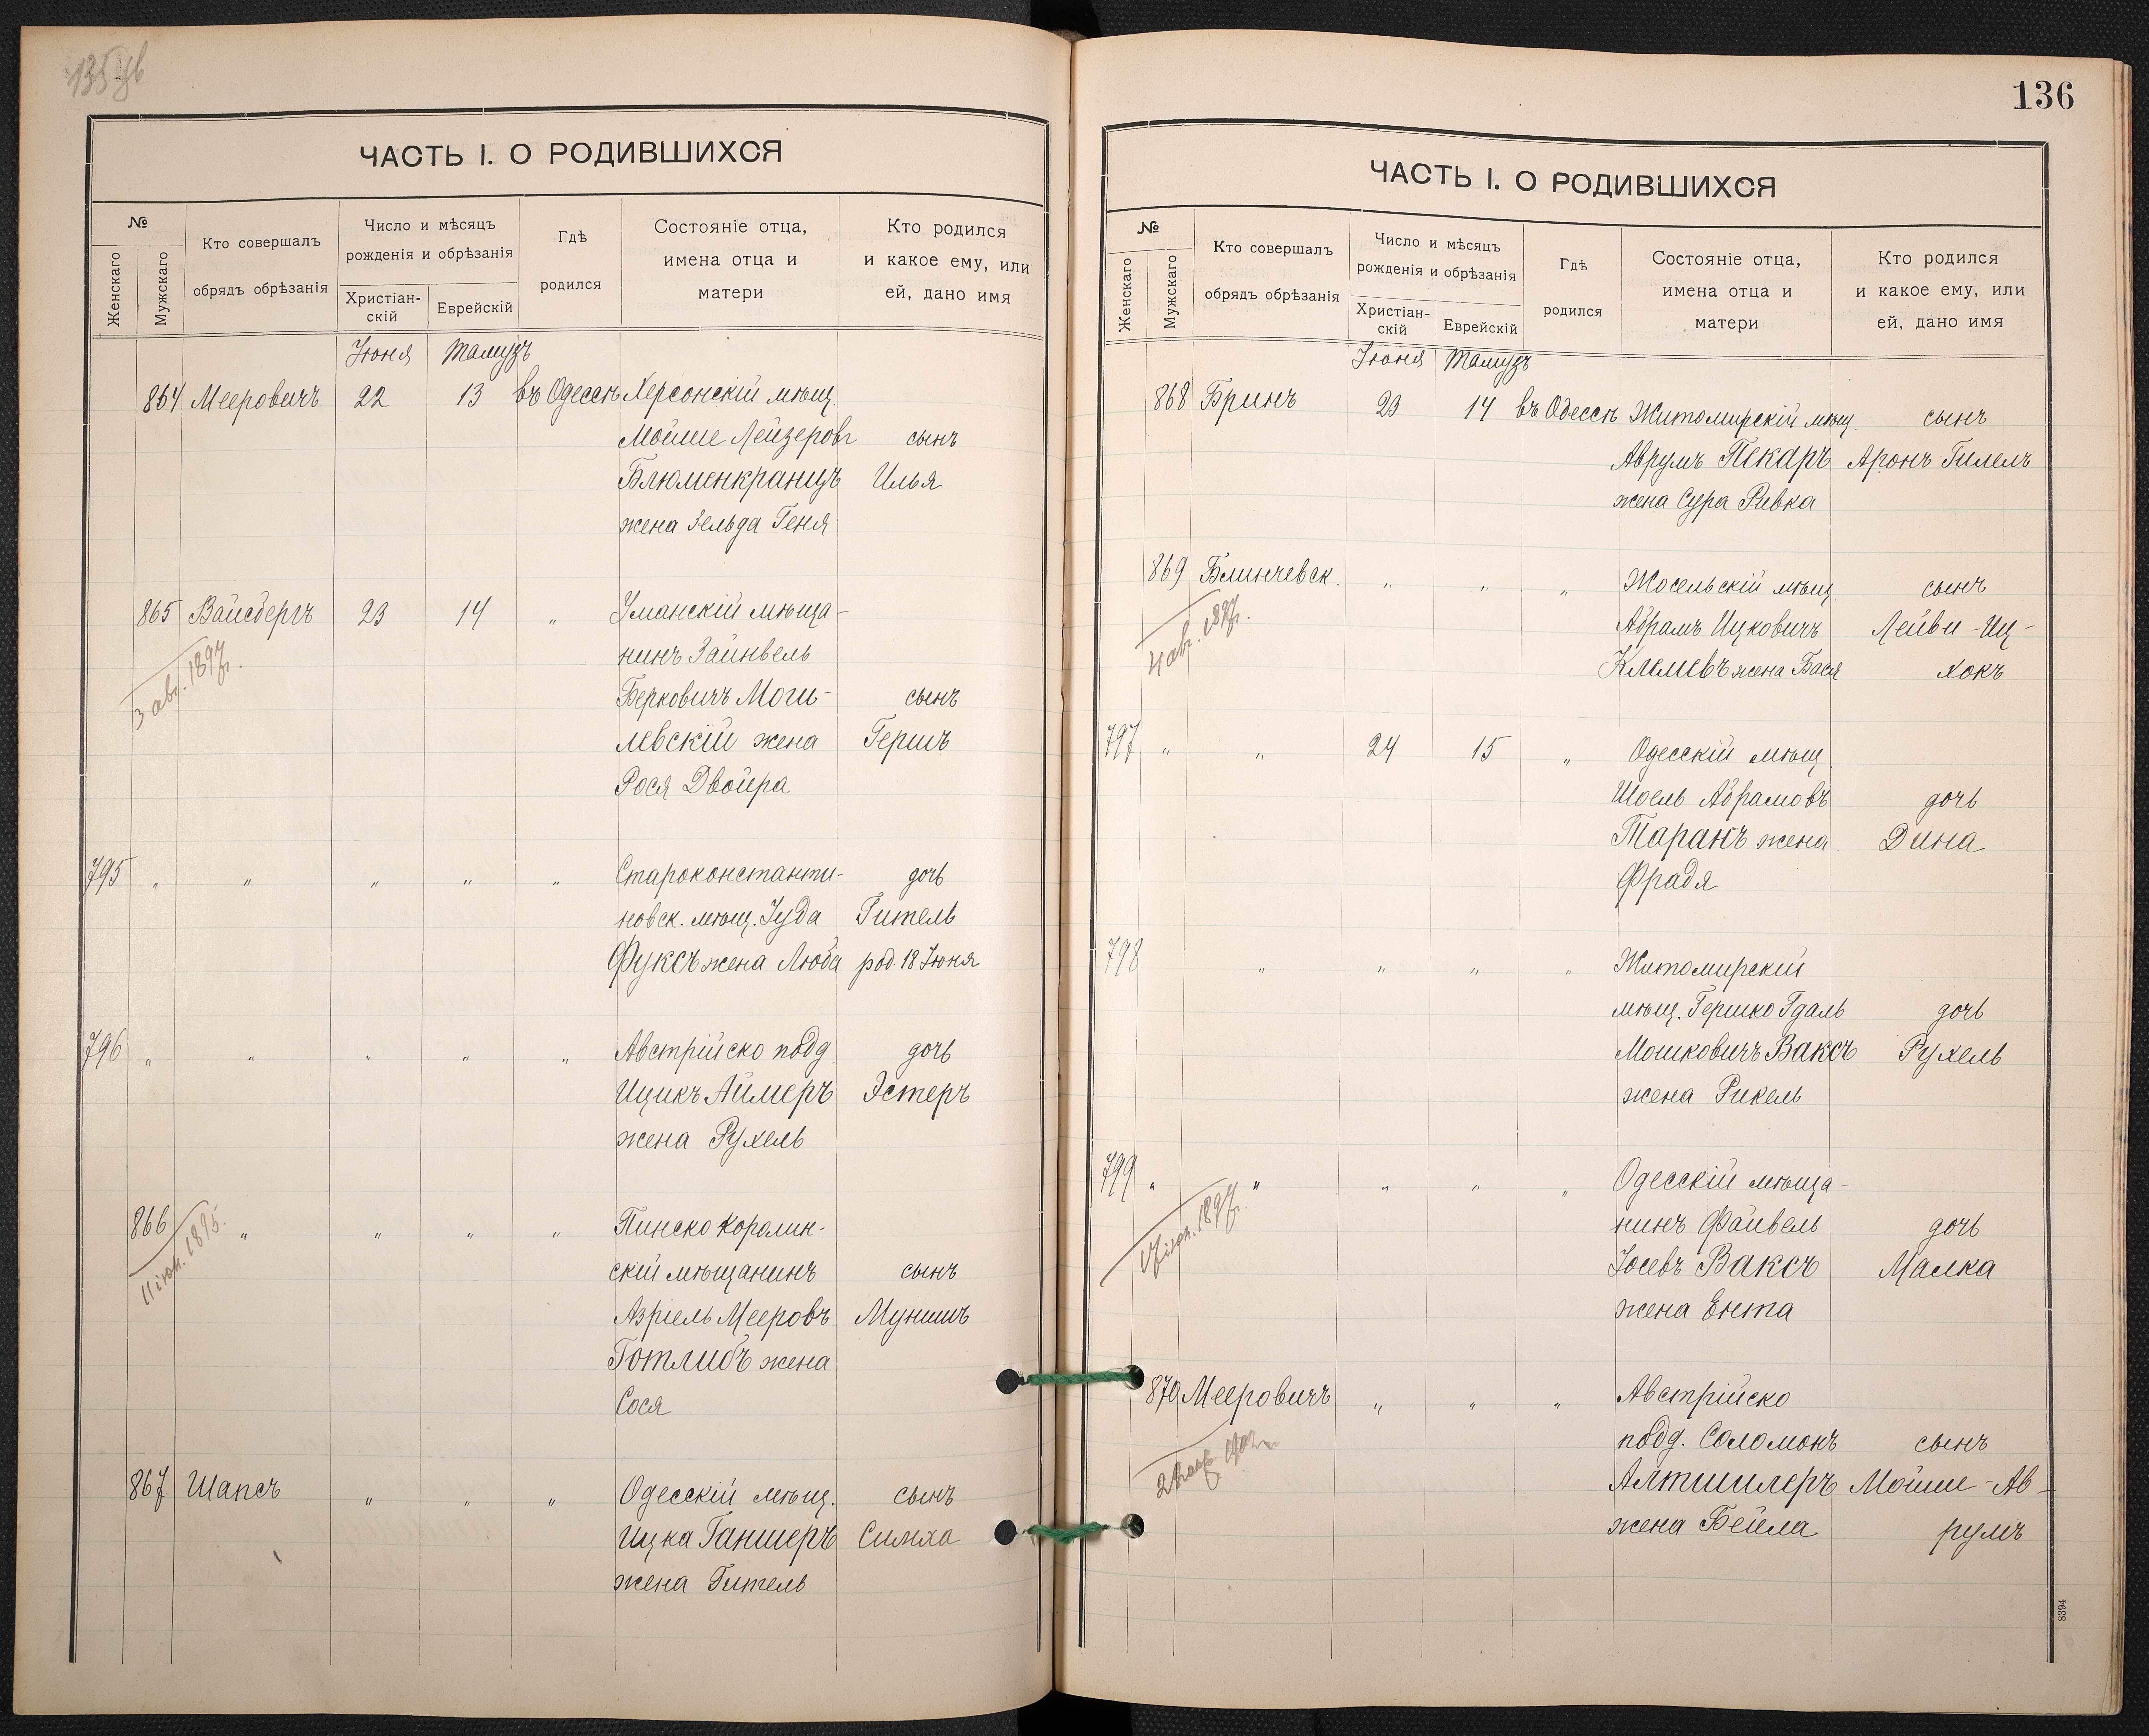 135 об
ЧАСТЬ I. О РОДИВШИХСЯ
№
Женскаго
Мужскаго
Кто совершалъ
обрядъ обрѣзанія
Число и мѣсяцъ
рожденія и обрѣзанія
Христіан-
скій
Еврейскій
Гдѣ
родился
Состояніе отца,
имена отца и
матери
Кто родился
и какое ему, или
ей, дано имя
Іюня Тамузъ
864 Мееровичъ 22 13 въ Одессѣ Херсонскій мѣщ.
Мойше Лейзеровъ сынъ
Блюменкранцъ Илья
жена Зельда Геня
865 Вайсбергъ 23 14 „ Уманскій мѣща-
3 авг. 1897г.
нинъ Зайнвель
Берковичъ Моги- сынъ
левскій жена Гершъ
Рося Двойра
795 „ „ „ „ „ Староконстанти- дочь
новск. мѣщ. Іуда Гитель
Фуксъ жена Люба род. 18 Іюня
796 „ „ „ „ „ Австрійско подд. дочь
Ицикъ Аймеръ Эстеръ
жена Рухель
866 „ „ „ „ Пинско Каролин-
11 іюн. 1895.
скій мѣщанинъ сынъ
Азріель Мееровъ Мунишъ
Готлибъ жена
Сося
867 Шапсъ „ „ „ Одесскій мѣщ. сынъ
Ицка Ганшеръ Симха
жена Гитель
136
ЧАСТЬ I. О РОДИВШИХСЯ
№
Женскаго
Мужскаго
Кто совершалъ
обрядъ обрѣзанія
Число и мѣсяцъ
рожденія и обрѣзанія
Христіан-
скій
Еврейскій
Гдѣ
родился
Состояніе отца,
имена отца и
матери
Кто родился
и какое ему, или
ей, дано имя
Іюня Тамузъ
868 Бринъ 23 14 въ Одессѣ Житомирскій мѣщ. сынъ
Аврумъ Пекаръ Аронъ-Гилель
жена Сура Ривка
869 Блинчевск. „ „ „ Мосельскій мѣщ. сынъ
4 авг. 1897г.
Абрамъ Ицковичъ Лейви-Иц-
Клемевъ жена Бася хокъ
797 „ „ 24 15 „ Одесскій мѣщ.
Шоель Абрамовъ дочь
Таранъ жена Дина
Фрадя
798 „ „ „ „ Житомирскій
мѣщ. Гершко Гдаль дочь
Мошковичъ Ваксъ Рухель
жена Рикель
799 „ „ „ „ „ Одесскій мѣща-
17 іюн. 1897г.
нинъ Файвель дочь
Іосевъ Ваксъ Малка
жена Ента
870 Мееровичъ „ „ „ Австрійско
подд. Соломонъ сынъ
Алтшилеръ Мойше-Ав-
жена Бейла румъ
8394